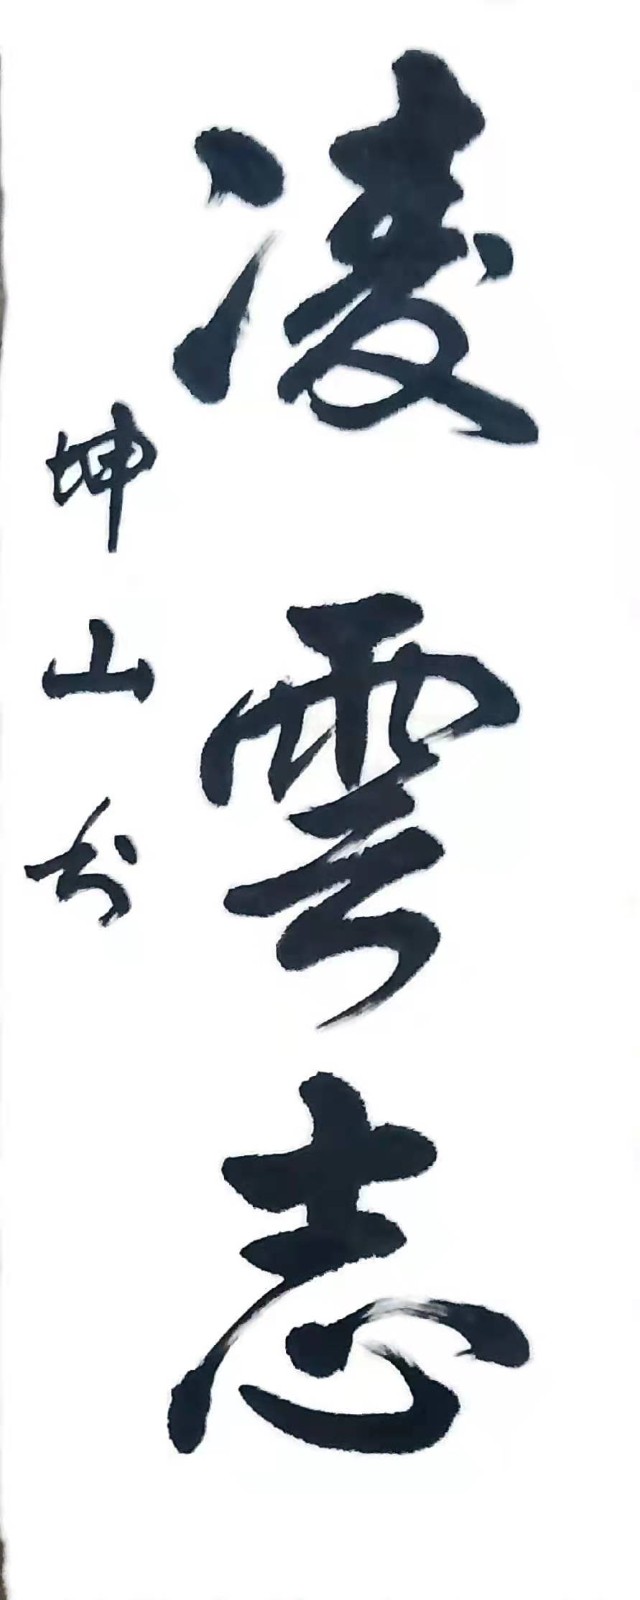 凌雲志
坤山书